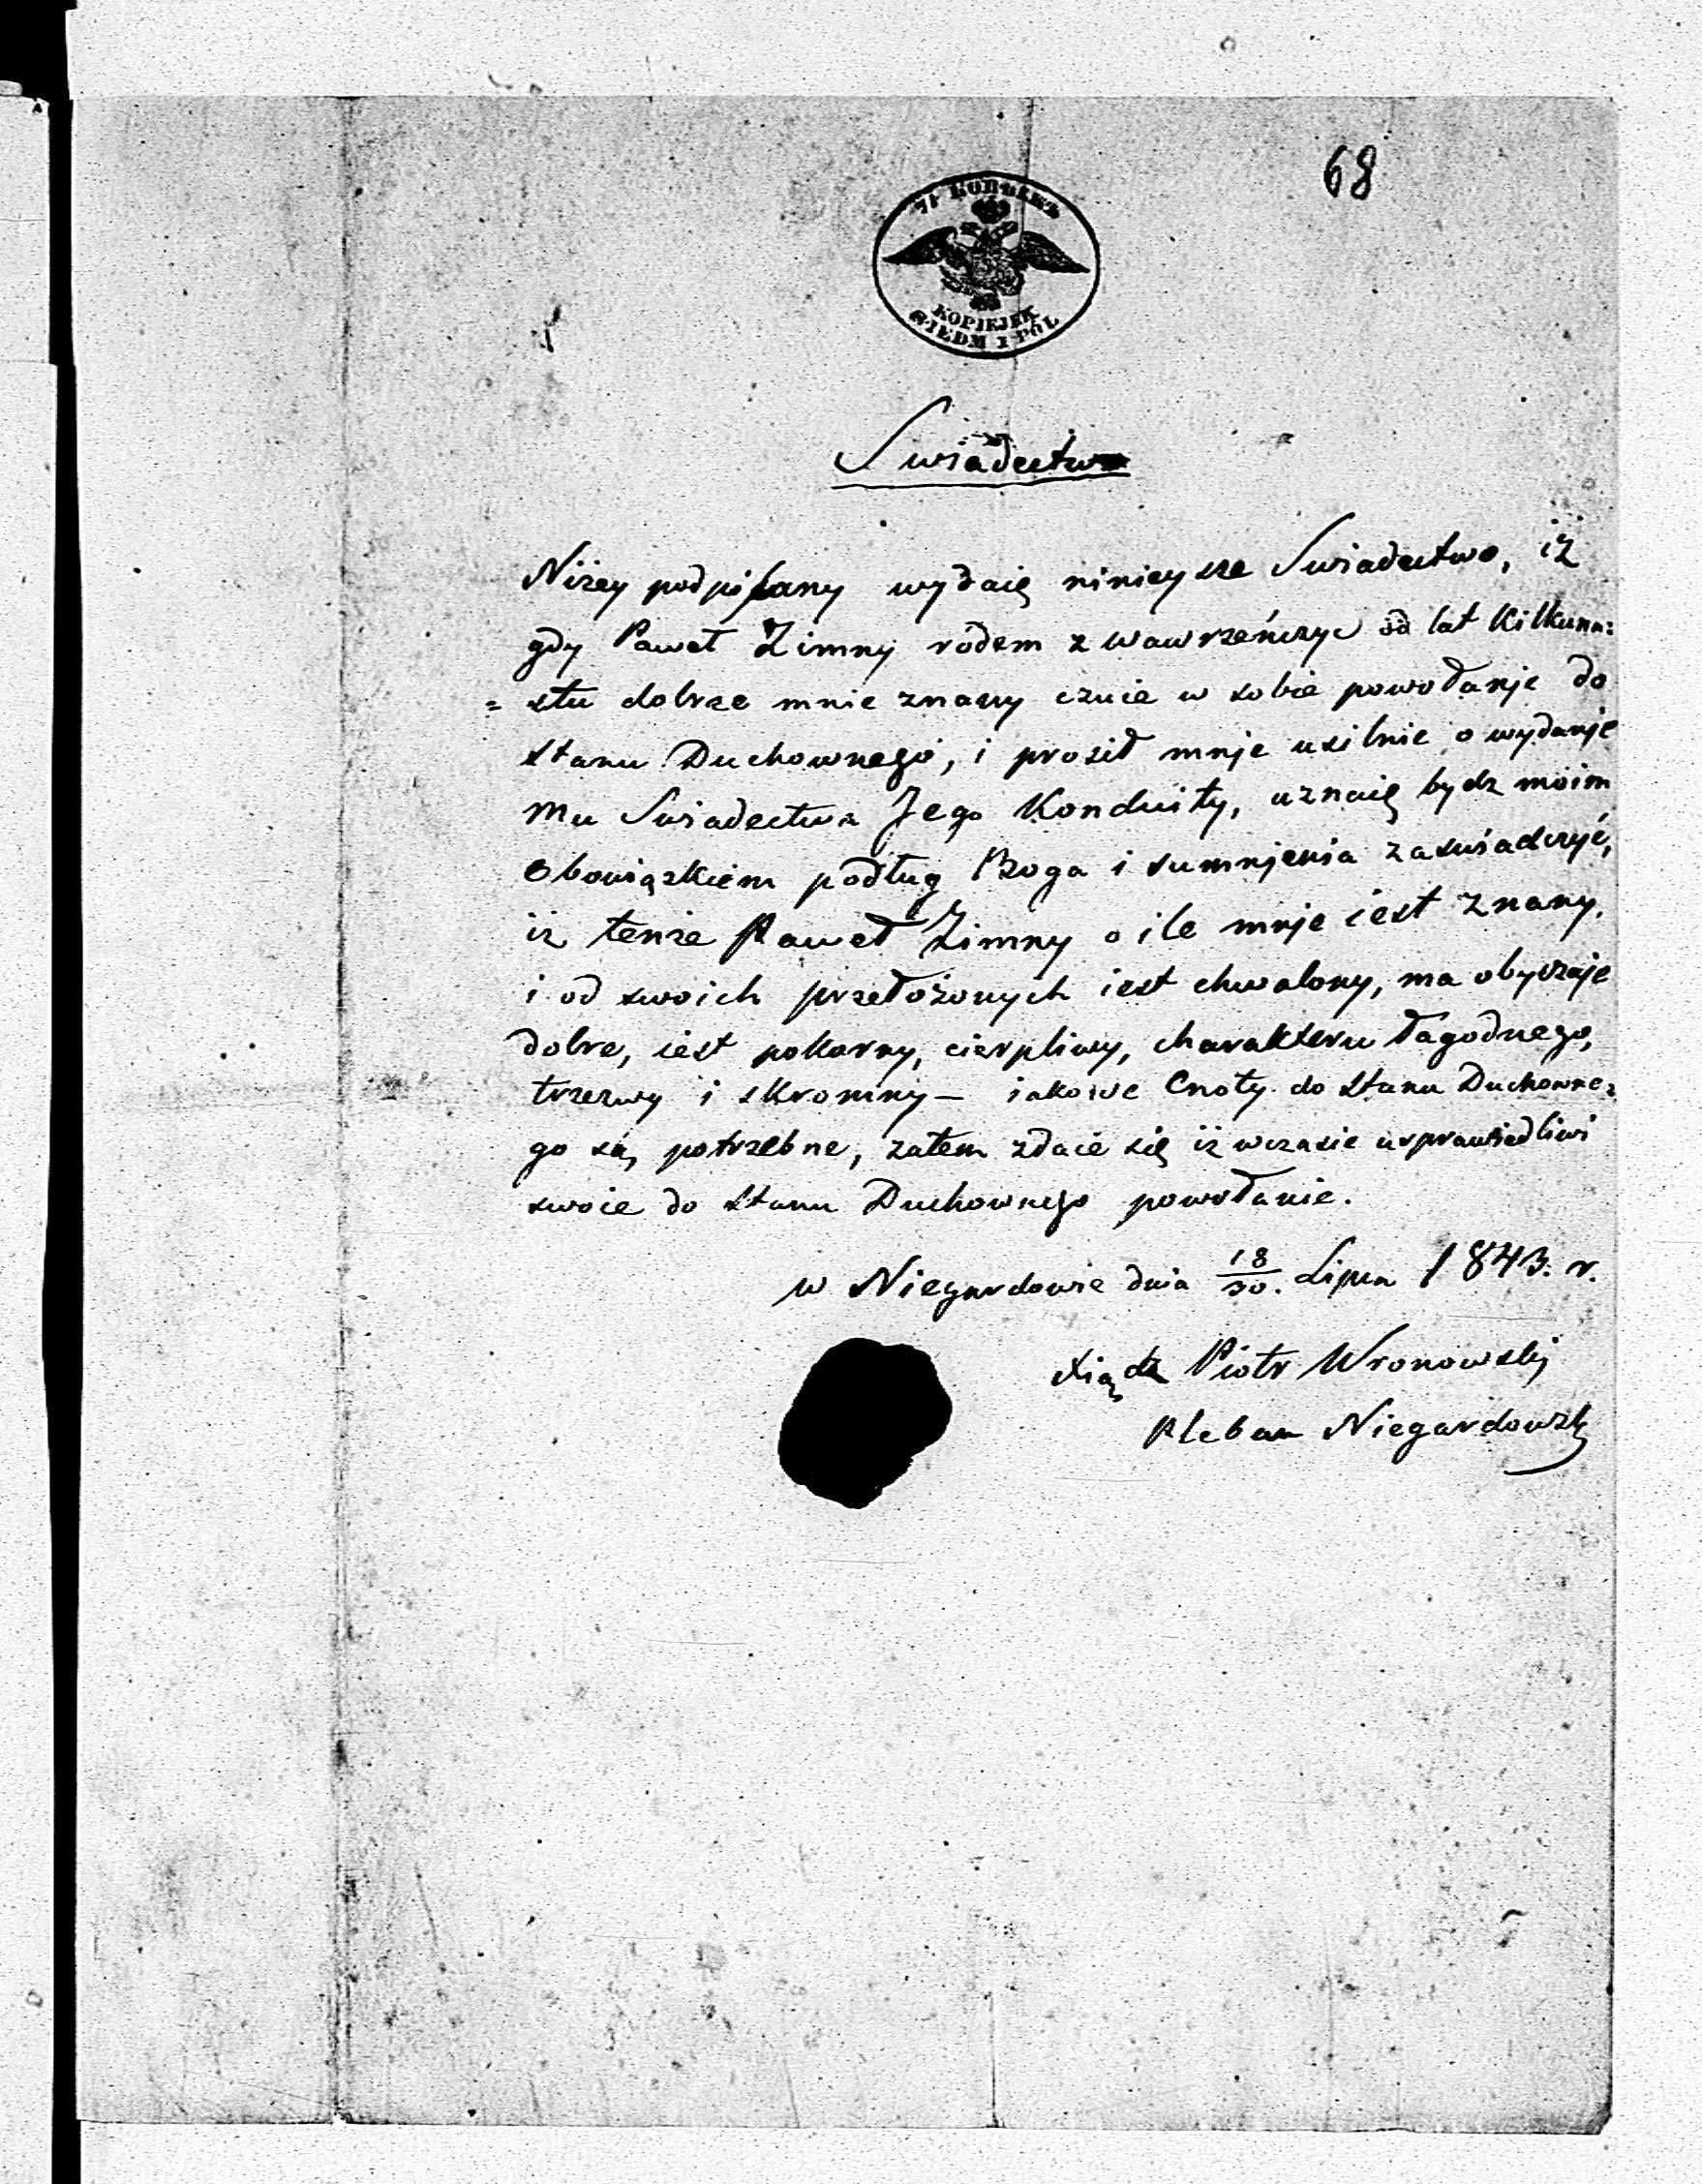 68
7½ КОПѢЕКЪ
KOPIEJEK
SIEDM I PÓŁ
Swiadectwo
Niżey podpisany wydaię ninieysze Swiadectwo, iż
gdy Paweł Zimny rodem z Wawrzeńczyc od lat kilkuna=
= stu dobrze mnie znany czuie w sobie powołanje do
stanu Duchownego, i prosił mnje usilnie o wydanje
mu Swiadectwa Jego Konduity, uznaię bydz moim
obowiązkiem podług Boga i sumnjenia zaświadczyć,
iż tenże Paweł Zimny o ile mnje iest znany,
i od swoich przełożonych iest chwalony, ma obyczaje
dobre, iest pokorny, cierpliwy, charakteru łagodnego,
trzezwy i skromny — iakowe Cnoty do stanu Duchowne=
go są potrzebne, zatem zdaie się iż wczasie usprawiedliwi
swoie do stanu Duchownego powołanie.
w Niegardowie dnia 18/30. Lipca 1843. r.
Xiądz Piotr Wronowski
Pleban Niegardowski